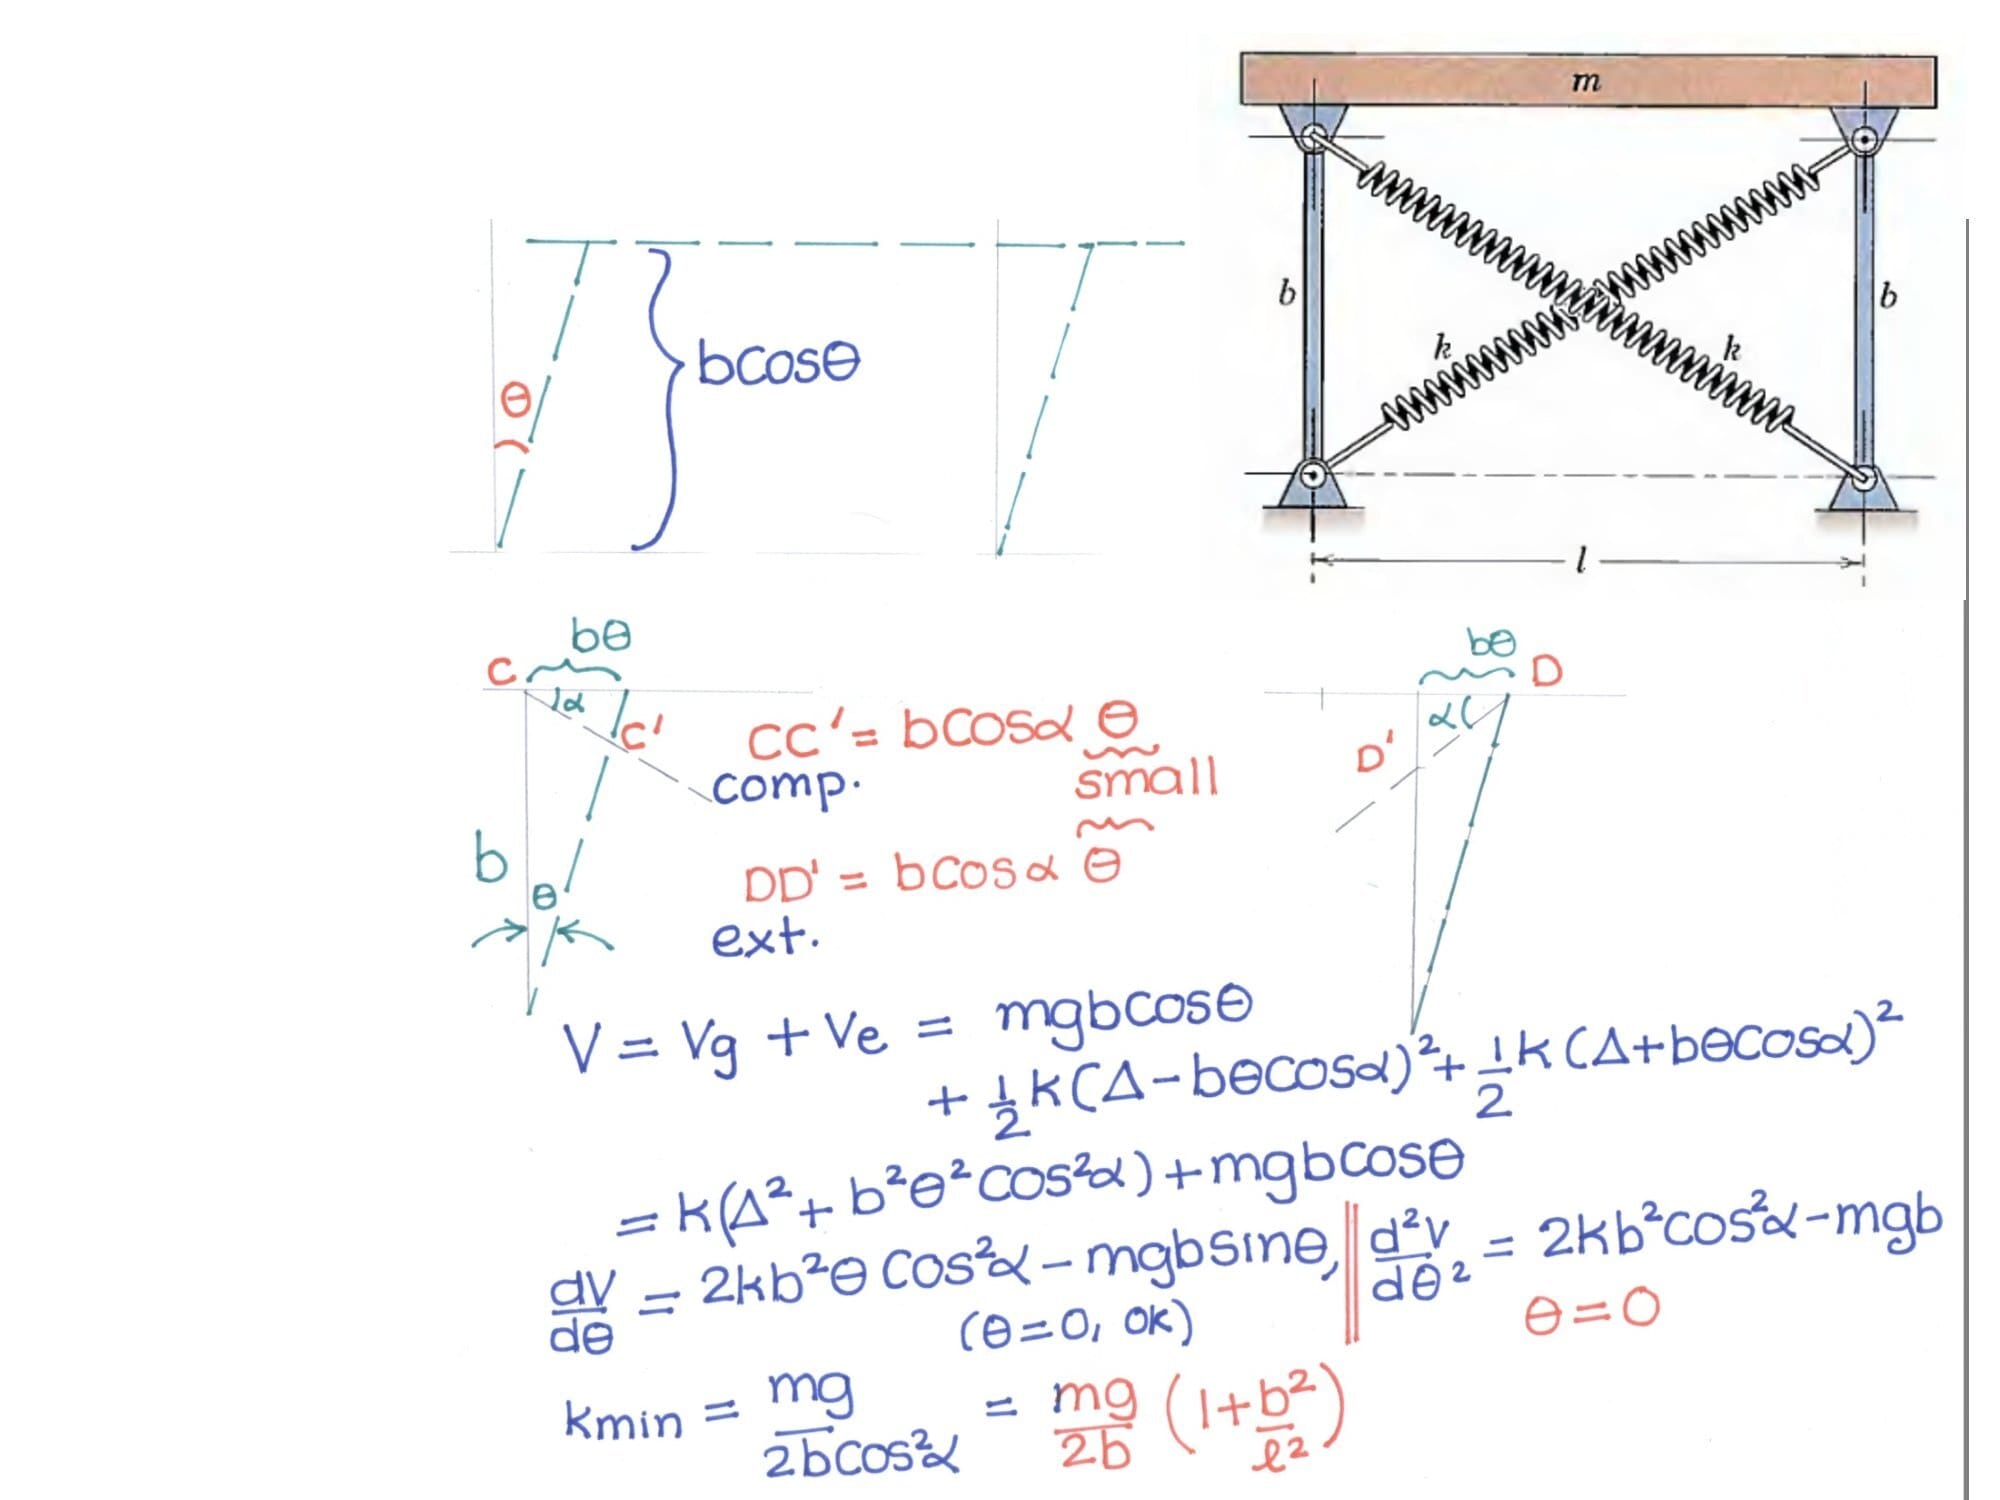 m
b
b
k
k
l
θ
bcosθ
bθ
C
α
C'
b
θ
CC' = bcosα θ
comp.
small
DD' = bcosα θ
ext.
bθ
D
α
D'
V = Vg + Ve = mgbcosθ
+ 1/2 k(Δ-bθcosα)² + 1/2 k(Δ+bθcosα)²
= k(Δ² + b²θ²cos²α) + mgbcosθ
dV/dθ = 2kb²θ cos²α - mgbsinθ, || d²V/dθ² = 2kb²cos²α - mgb
(θ=0, OK)
θ=0
kmin = mg/2bcos²α = mg/2b (1+b²/ℓ²)